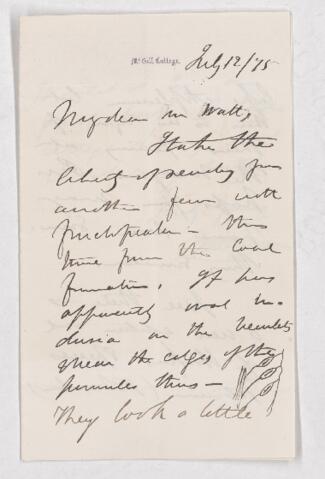 McGill College.
July 12/75
My dear Mr Watt,
I take the
liberty of sending you
another fern with
fructification – this
time from the Coal
formation. It has
apparently oval in-
dusia on the veinlets
near the edges of the
pinnules thus –
They look a little